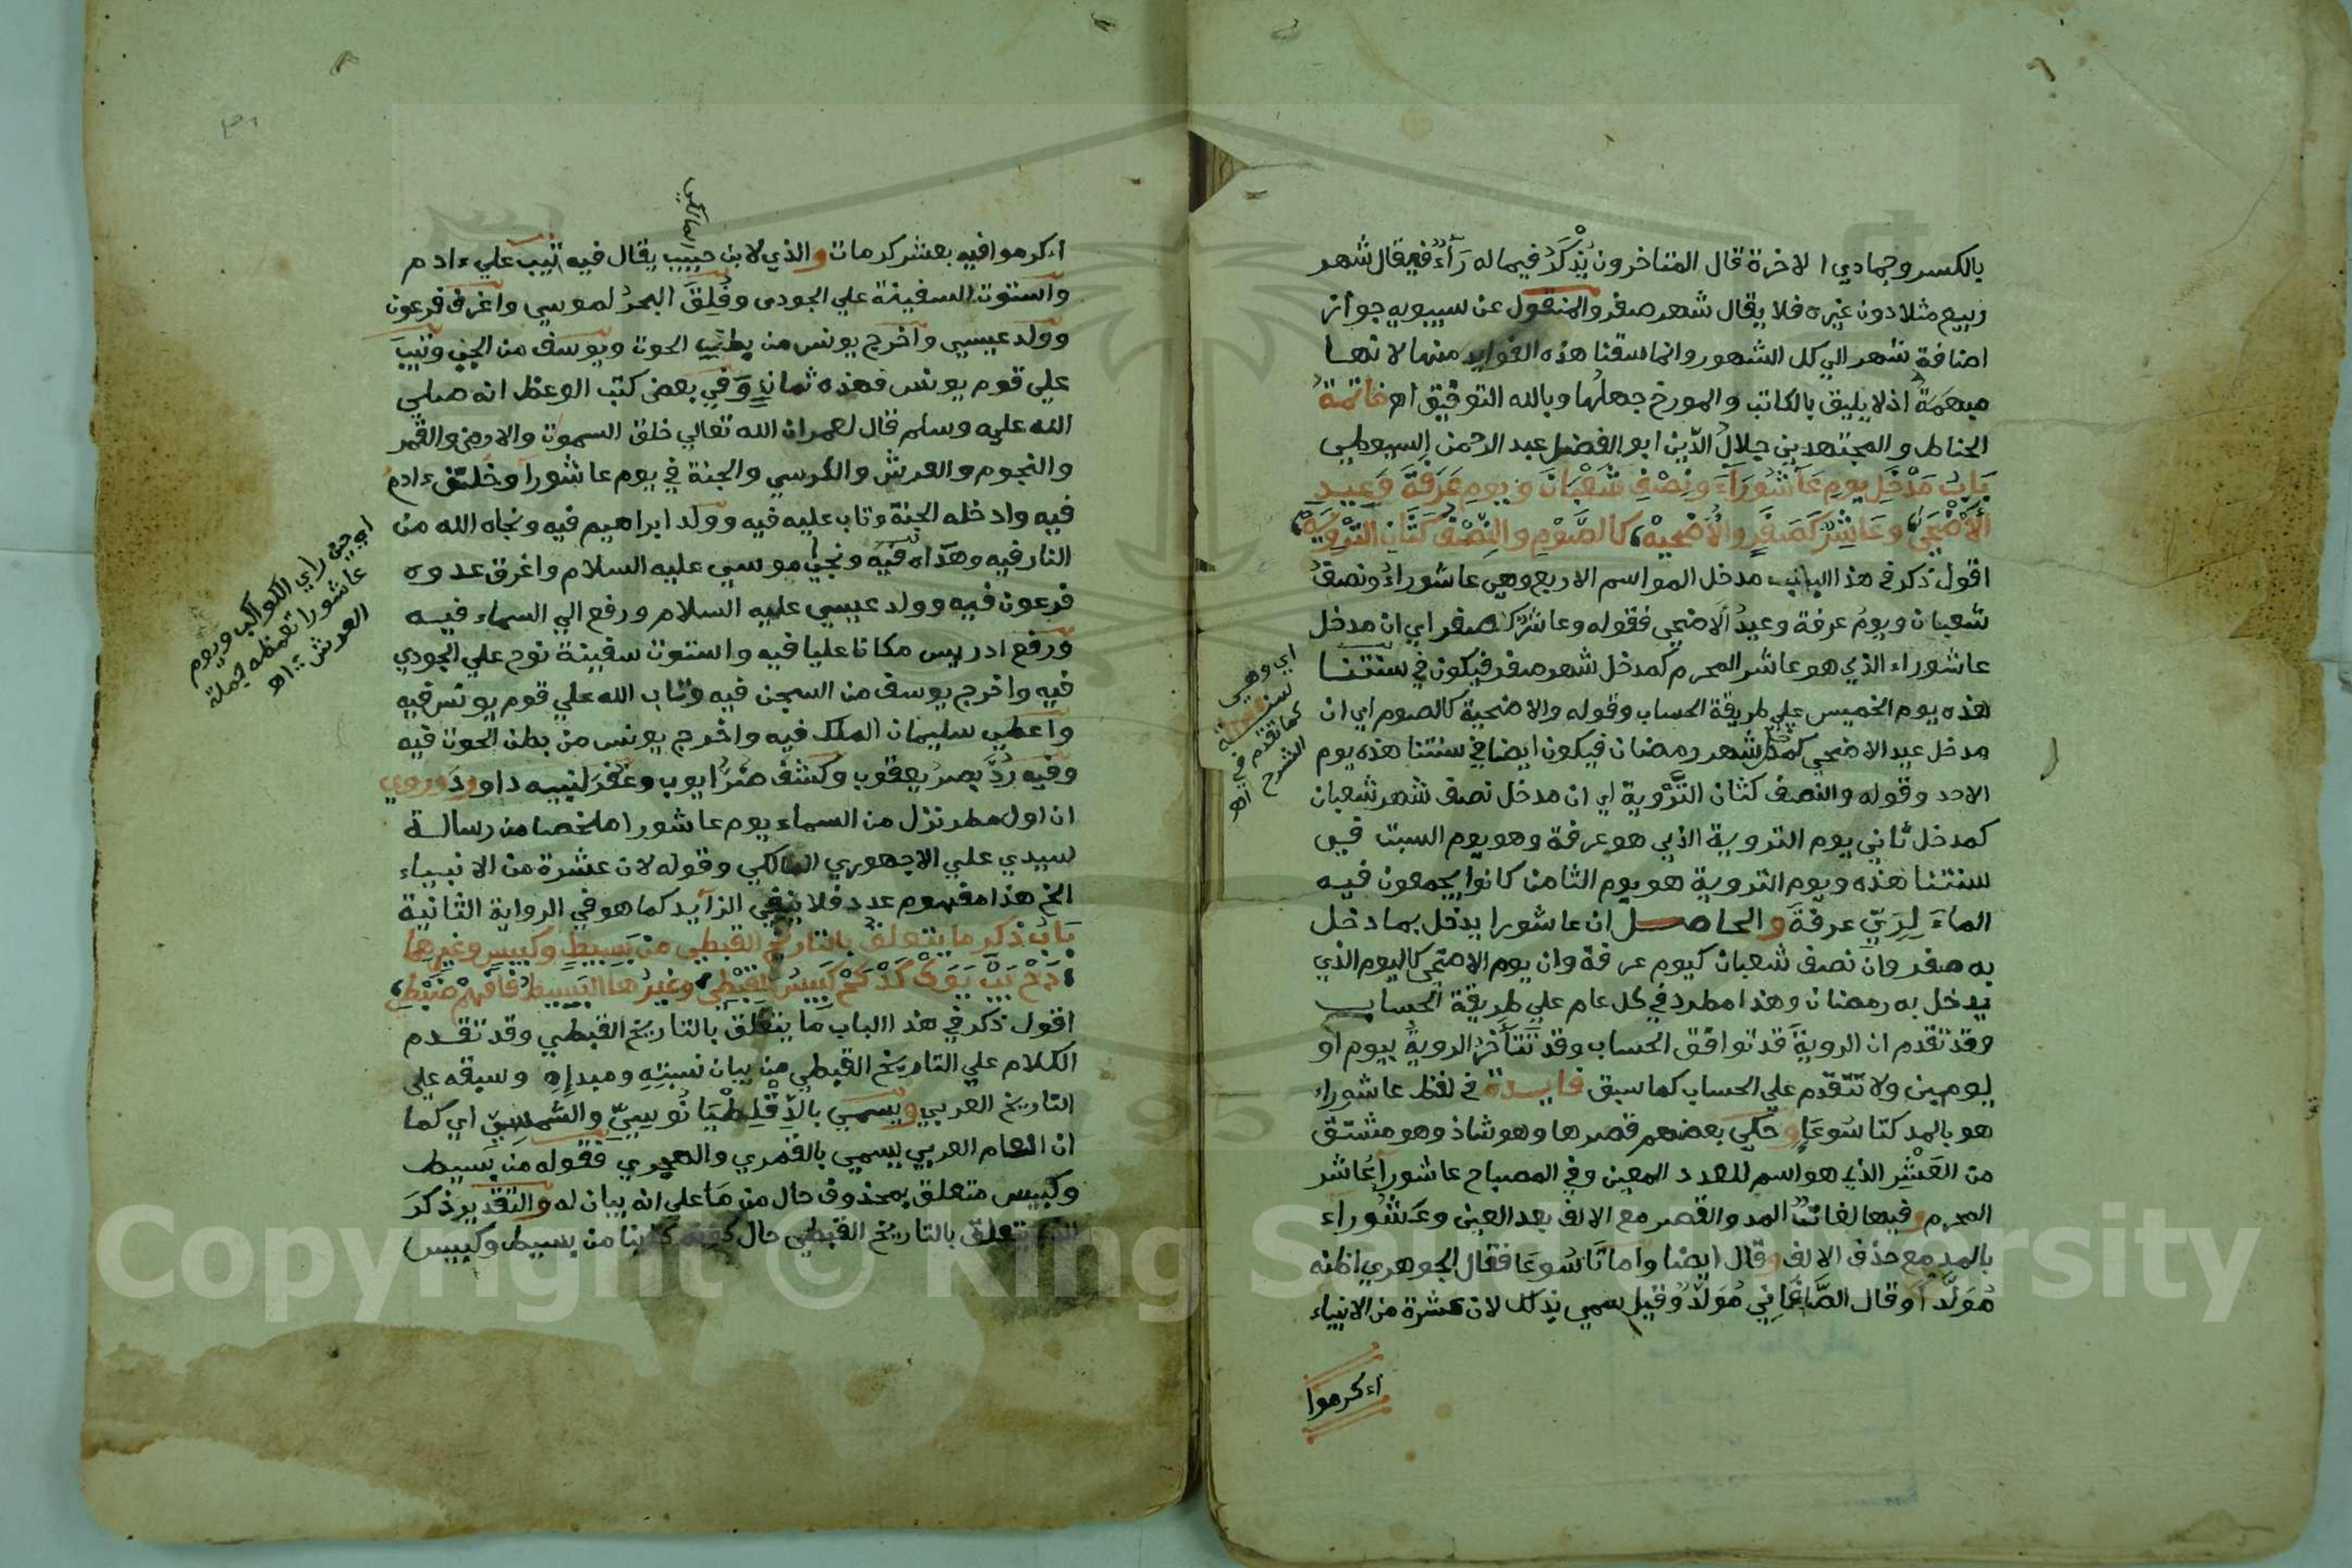 بالكسر وجمادي الاخرة قال المتاخرون يُذْكَرُ فيما له رَآءٌ فيقال شهر
ربيع مثلا دون غيره فلا يقال شهر صفر والمنقول عن سيبويه جواز
اضافة شهر الي كل الشهور وانما سقنا هذه الفوايد منها لانها
مبهمة اذ لا يليق بالكاتب والمورخ جهلها وبالله التوفيق اه خاتمة
الحفاظ والمجتهدين جلال الدين ابو الفضل عبد الرحمن السيوطي
بَابُ مَدْخَلِ يومِ عَآشُورَآءَ ونِصْفِ شَعْبَانَ ويومِ عَرَفَةَ وَعِيدِ
الْأَضْحَي وعَاشِرٌ كَصَفَرٍ والْأَضْحِيهْ كالصَّوْمِ والنِّصْفُ كَثَانِ التَّرْوِيَهْ
اقول ذكر في هذا الباب مدخل المواسم الاربع وهي عاشوراءُ ونصفُ
شعبان ويومُ عرفة وعيدُ الاضحي فقوله وعاشرٌ كصفر اي ان مدخل
عاشوراء الذي هو عاشر المحرم كمدخل شهر صفر فيكون في سنتنا
هذه يوم الخميس علي طريقة الحساب وقوله والاضحية كالصوم اي ان
مدخل عيد الاضحي كمدخل شهر رمضان فيكون ايضا في سنتنا هذه يوم
الاحد وقوله والنصف كثان التَّرْوية اي ان مدخل نصف شهر شعبان
كمدخل ثاني يوم التروية الذي هو عرفة وهو يوم السبت في
سنتنا هذه ويوم التروية هو يوم الثامن كانوا يجمعون فيه
الماءَ لِرَيِّ عرفةَ والحاصل ان عاشورا يدخل بما دخل
به صفر وان نصف شعبان كيوم عرفة وان يوم الاضحي كاليوم الذي
يدخل به رمضان وهذا مطرد في كل عام علي طريقة الحساب
وقد تقدم ان الرويةَ قد توافق الحساب وقد تتأخرُ الرويةُ بيوم او
يومين ولا تتقدم علي الحساب كما سبق فايدة في لفظ عاشوراء
هو بالمد كتاسُوعَا وحكي بعضهم قصرها وهو شاذ وهو مشتق
من العَشْرِ الذي هو اسم للعدد المعين وفي المصباح عاشورا عَاشر
المحرم وفيها لغات المد والقصر مع الالف بعد العين وعَشُوراء
بالمد مع حذف الالف وقال ايضا واما تَاسُوعَا فقال الجوهري اظنه
مُوَلَّدًا وقال الصَّاغَانِي مُوَلَّدٌ وقيل سمي بذلك لان عشرة من الانبياء
اءكرموا
اي وهي
سنة
كما تقدم في
الشرح اه
اءكرموا فيه بعشر كرمات والذي لابن حبيب يقال فيه تيب علي ءادم
المالكي
واستوت السفينة علي الجودى وفُلِقَ البحرُ لموسي واغرق فرعون
وولد عيسي واخرج يونس من بطن الحوت ويوسف من الجب وتيبَ
علي قوم يونس فهذه ثمان وَفي بعض كتب الوعظ انه صلي
الله عليه وسلم قال لعمر ان الله تعالي خلق السموت والارض والقمر
والنجوم والعرش والكرسي والجنة في يوم عاشورا وخلق ءادمُ
فيه وادخله الجنة وتاب عليه فيه وولد ابراهيم فيه ونجاه الله من
النار فيه وهداه فيه ونجي موسي عليه السلام واغرق عدوه
فرعون فيه وولد عيسي عليه السلام ورفع الي السماء فيه
ورفع ادريس مكانا عليا فيه واستوت سفينة نوح علي الجودي
فيه واخرج يوسف من السجن فيه وتاب الله علي قوم يونس فيه
واعطي سليمان الملك فيه واخرج يونس من بطن الحوت فيه
وفيه رُدَّ بصرُ يعقوب وكشف ضُرُّ ايوب وغَفَرَ لنبيه داوودَ وروي
ان اول مطر نزل من السماء يوم عاشورا ملخصا من رسالة
سيدي علي الاجهوري المالكي وقوله لان عشرة من الانبياء
الخ هذا مفهوم عدد فلا ينفي الزآيد كما هو في الرواية الثانية
بَابُ ذكر ما يتعلق بالتاريخ القبطي من بَسِيطٍ وكبيسٍ وغيرها
كَبِيسُ القِبْطِي وغيرُها البَسِيطُ فَافْهَمْ ضَبْطِي
اقول ذكر في هذا الباب ما يتعلق بالتاريخ القبطي وقد تقدم
الكلام علي التاريخ القبطي من بيان نسبته ومبداِهِ وسبقه علي
التاريخ العربي ويسمي بالدِّقْلِطْيَانُوسِيِّ والشمسِيِّ اي كما
ان العام العربي يسمي بالقمري والهجري فقوله من بَسيط
وكبيس متعلق بمحذوف حال من مَا علي انه بيان له والتقدير ذكرَ
الذي يتعلق بالتاريخ القبطي حال كونه كاينا من بسيط وكبيس
اي حين راي الكواكب ويوم
عاشورا تعظمه حملة
العرش اه
Copyright © King Saud University